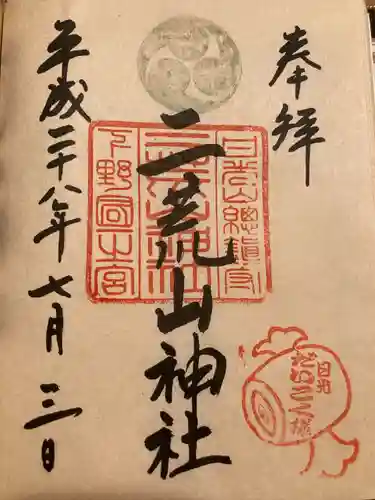 奉拝
二荒山神社
平成二十八年七月三日
日光山總鎮守
二荒山神社
下野國一宮
日光
だいこく様